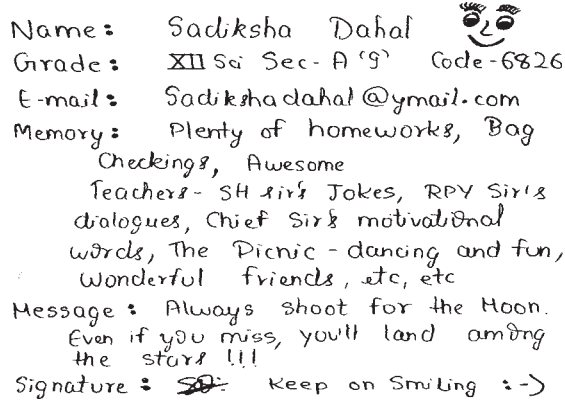 Name : Sadiksha Dahal
Grade : XII Sci Sec - A '9' Code - 6826
E-mail : Sadikshadahal@ymail.com
Memory : Plenty of homeworks, Bag
Checkings, Awesome
Teachers - SH sir's Jokes, RPY Sir's
dialogues, Chief Sir's motivational
words, The Picnic - dancing and fun,
Wonderful friends, etc, etc
Message : Always shoot for the Moon.
Even if you miss, you'll land among
the stars !!!
Signature : Keep on Smiling :-)